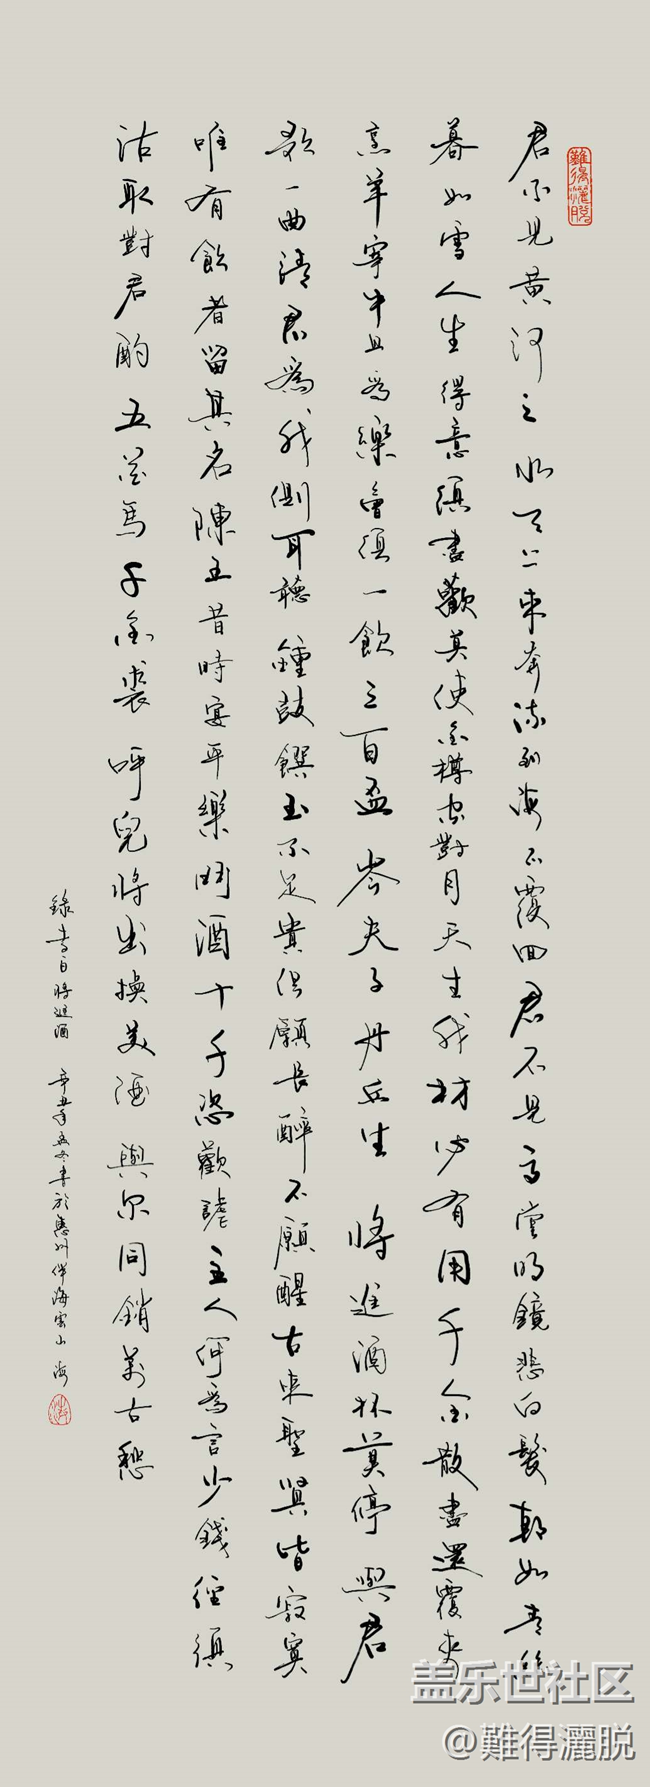 難得灑脫
君不見黃河之水天上來奔流到海不覆回君不見高堂明鏡悲白髮朝如青絲
暮如雪人生得意須盡歡莫使金樽空對月天生我材必有用千金散盡還覆來
烹羊宰牛且為樂會須一飲三百盃岑夫子丹丘生將進酒杯莫停與君
歌一曲請君為我側耳聽鐘鼓饌玉不足貴但願長醉不願醒古來聖賢皆寂寞
唯有飲者留其名陳王昔時宴平樂鬥酒十千恣歡謔主人何為言少錢徑須
沽取對君酌五花馬千金裘呼兒將出換美酒與尔同銷萬古愁
錄李白將進酒 辛丑年冬書於惠州伴海雲山 海
盖乐世社区
@難得灑脱